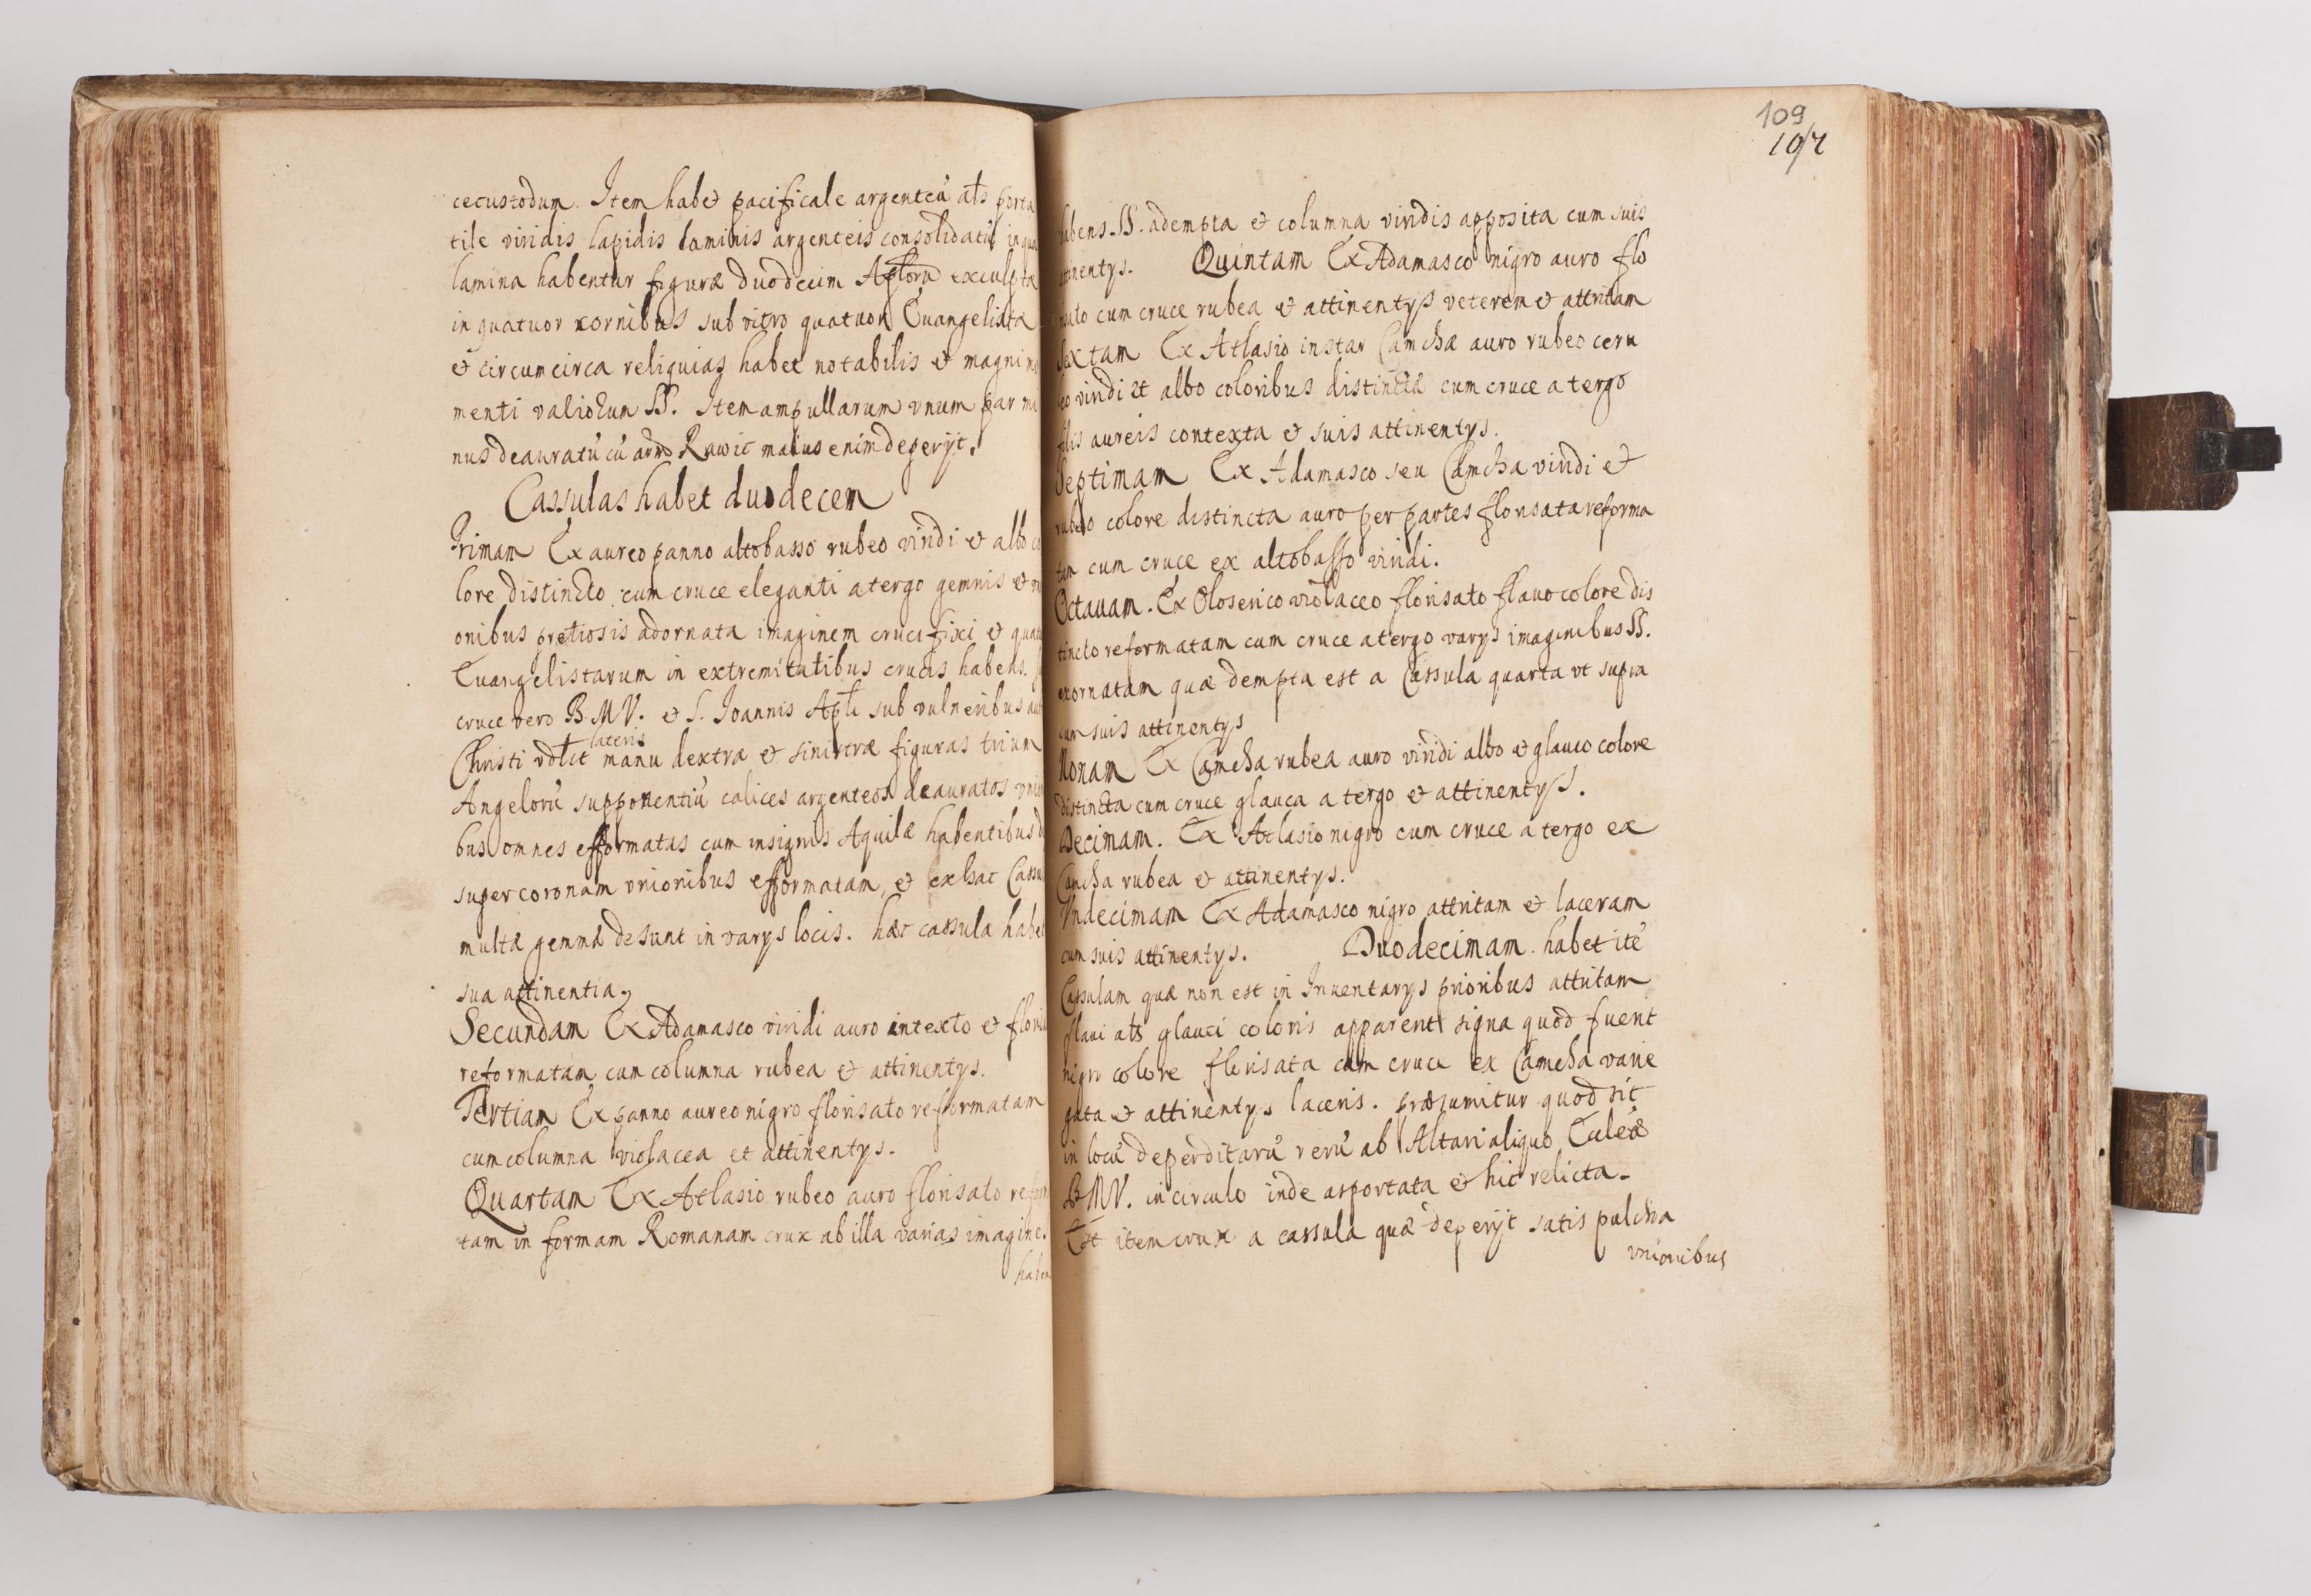 cecustodum. Item habet pacificale argenteũ als porta
tile viridis lapidis laminis argenteis consolidatũ in qua
lamina habentur figuræ duodecim Aplorũ exculptæ
in quatuor cornibus sub vitro quatuor Euangelistæ
et circumcirca reliquias habet notabilis et magni mo
menti valiorum SS. Item ampullarum vnum par mi
nus deauratũ cũ armo Rawic maius enim deperijt.
Cassulas habet duodecem
Primam Ex aureo panno altobasso rubeo viridi et albo co
lore distincto cum cruce eleganti a tergo gemmis et vni
onibus pretiosis adornata imaginem crucifixi et quatu
Euangelistarum in extremitatibus crucis habens.
cruce vero B.M.V. et S. Joannis Apli sub vulneribus aut
Christi vdlt lateris manu dextræ et sinistræ figuras trium
Angelorũ supponentiũ calices argenteos deauratos vnioni
bus omnes efformatas cum insignis Aquilæ habentibus
super coronam vnionibus efformatam, et ex hac Cassu
multæ gemmæ desunt in varys locis. hæc cassula habet
sua attinentia.
Secundam Ex Adamasco viridi auro intexto et florisa
reformatam cum columna rubea et attinentys.
Tertiam Ex panno aureo nigro florisato reformatam
cum columna violacea et attinentys.
Quartam Ex Atlasio rubeo auro florisato refor
tam in formam Romanam crux ab illa varias imagines
haben
109
107
habens SS. adempta et columna viridis apposita cum suis
attinentys. Quintam Ex Adamasco nigro auro flo
risato cum cruce rubea et attinentys veterem et attritam
Sextam Ex Atlasio instar Camchæ auro rubeo ceru
leo viridi et albo coloribus distinctæ cum cruce a tergo
filis aureis contexta et suis attinentys.
Septimam Ex Adamasco seu Camcha viridi et
rubeo colore distincta auro per partes florisata reforma
tam cum cruce ex altobasso viridi.
Octauam. Ex Oloserico violaceo florisato flauo colore dis
tincto reformatam cum cruce a tergo varys imaginibus SS.
exornatam quæ dempta est a Cassula quarta vt supra
cum suis attinentys
Nonam Ex Camcha rubea auro viridi albo et glauco colore
distincta cum cruce glauca a tergo et attinentys.
Decimam. Ex Atlasio nigro cum cruce a tergo ex
Camcha rubea et attinentys.
Vndecimam Ex Adamasco nigro attritam et laceram
cum suis attinentys. Duodecimam habet itẽ
Cassulam quæ non est in Inuentarys prioribus attritam
flaui als glauci coloris apparent signa quod fuerit
nigro colore florisata cum cruce ex Camcha varie
gata et attinentys laceris. præsumitur quod sit
in locũ deperditarũ rerũ ab Altari aliquo Ecclesiæ
B.M.V. in circulo inde asportata et hic relicta.
Est item crux a cassula quæ deperijt satis pulchra
vnionibus